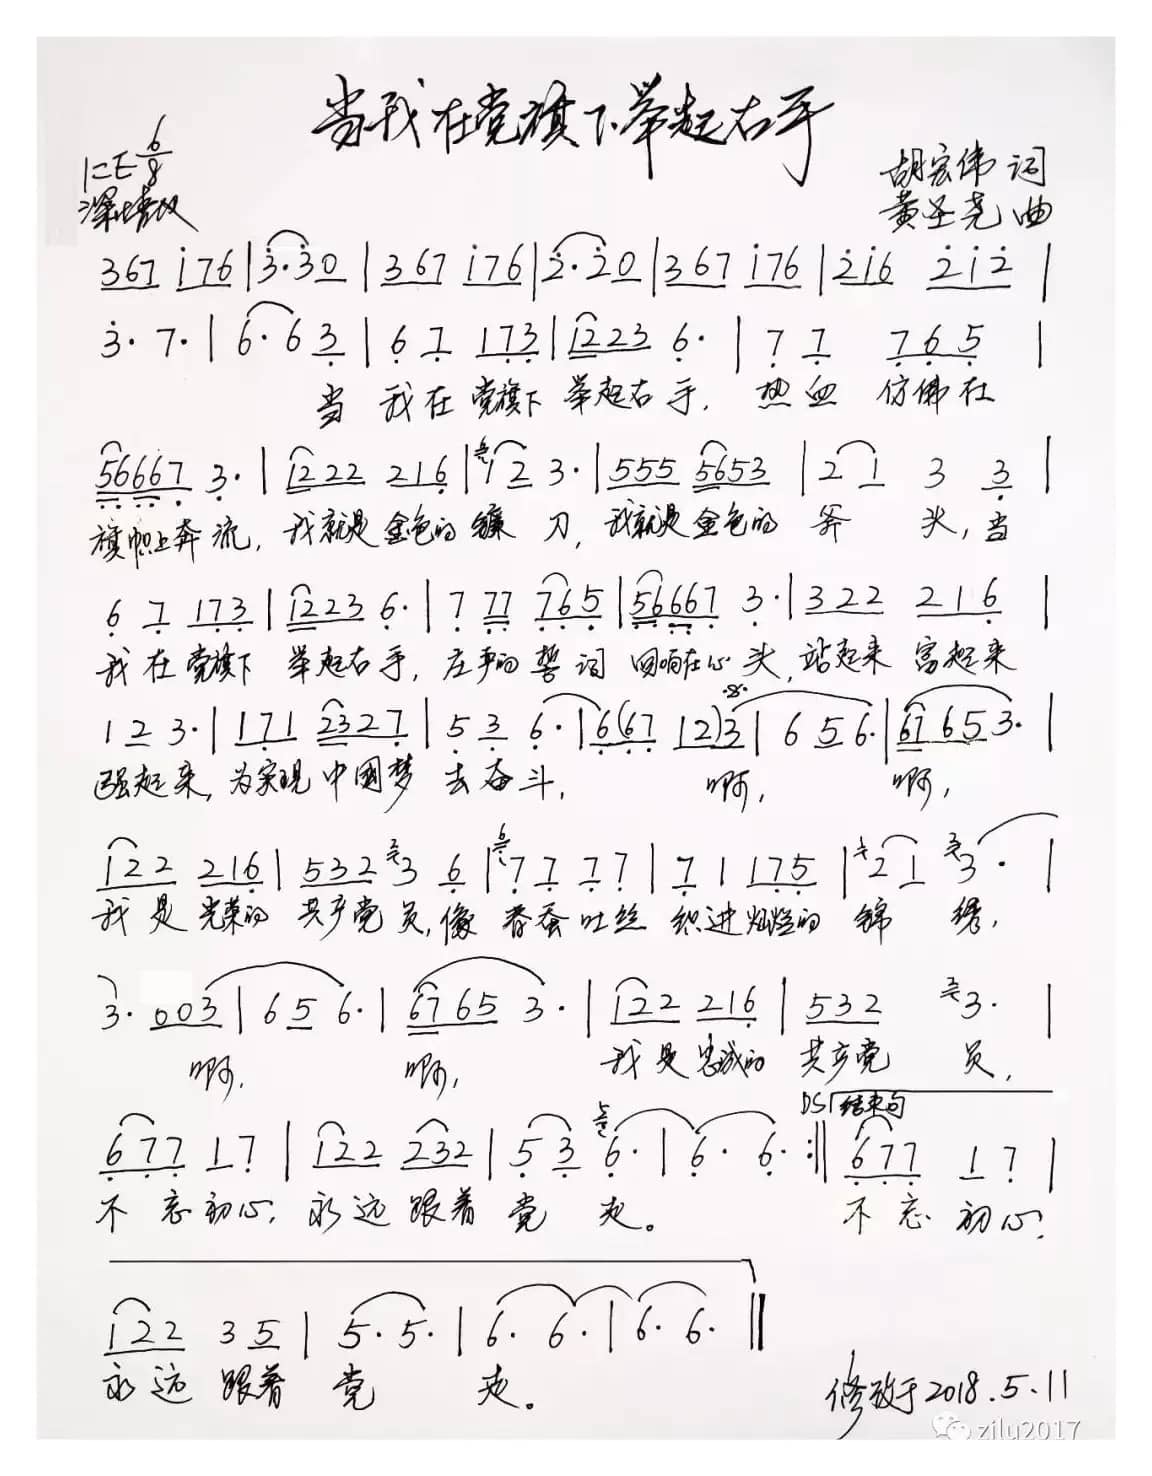 当我在党旗下举起右手
1=E 6/8
深情地
胡宏伟 词
黄圣尧 曲
367 i76 | 3̇·3̇0 | 367 i76 | 2̇·2̇0 | 367 i76 | 2̇i6 2̇i2̇ |
3̇· 7· | 6· 6 3 | 6 7 173 | 1223 6· | 7 7 765 |
当 我在党旗下 举起右手，热血 仿佛在
56667 3· | 1222 216 | 12 3· | 555 5653 | 2 1 3 3 |
旗帜上奔流，我就是金色的镰刀，我就是金色的斧头，当
6 7 173 | 1223 6· | 7 77 765 | 56667 3· | 322 216 |
我在党旗下 举起右手，庄严的誓词回响在心头，站起来富起来
1 2 3· | 171 2327 | 5 3 6· | 6(67 12)3 | 6 5 6· | 67 65 3· |
强起来，为实现中国梦去奋斗， 啊， 啊，
122 216 | 532 3 6 | 7 7 7 7 | 7 1 175 | 2 1 3· |
我是光荣的共产党员，像春蚕吐丝 织进灿烂的锦绣，
3· 003 | 6 5 6· | 6765 3· | 122 216 | 532 3· |
啊， 啊， 我是忠诚的共产党员，
DS 结束句
677 17 | 122 232 | 5 3 6· | 6· 6· :‖ 677 1 7 |
不忘初心，永远跟着党走。 不忘初心，
122 3 5 | 5· 5· | 6· 6· | 6· 6· ‖
永远跟着党 走。
修改于2018.5.11
zilu2017